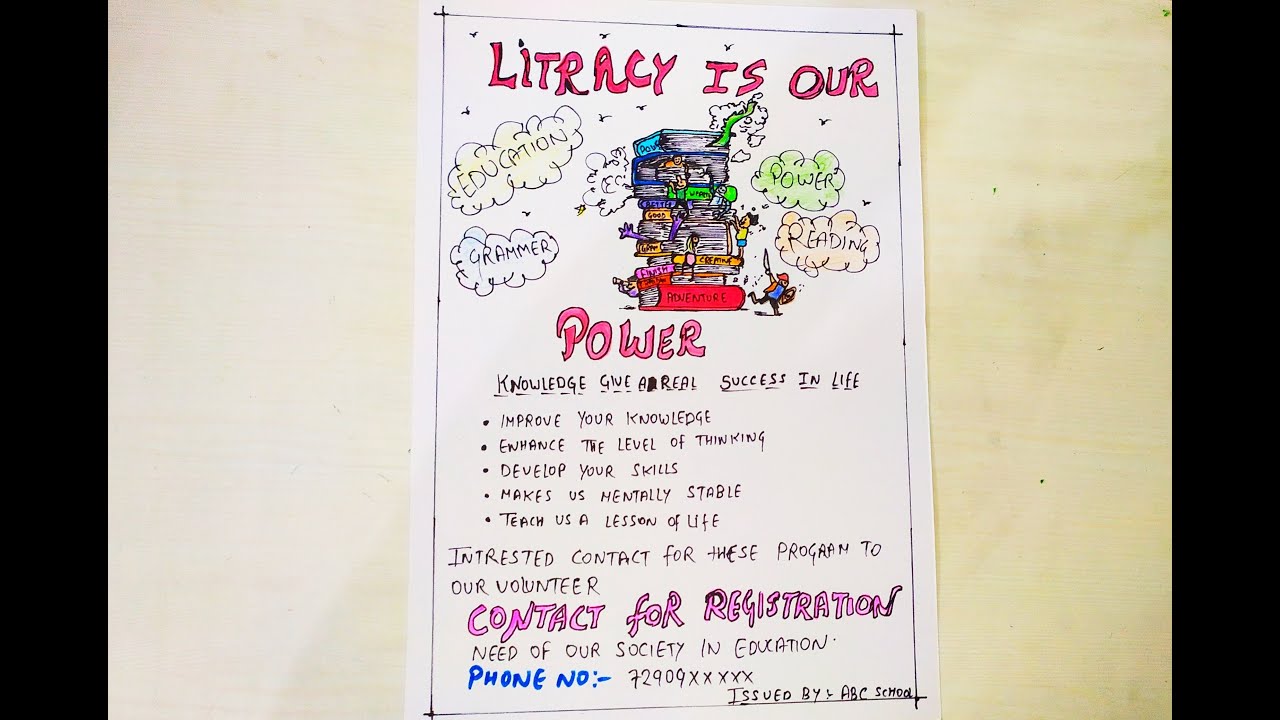 LITRACY IS OUR
EDUCATION
POWER
GRAMMER
READING
GOOD
CREATIVE
FINISH
ADVENTURE
POWER
KNOWLEDGE GIVE A REAL SUCCESS IN LIFE
• IMPROVE YOUR KNOWLEDGE
• ENHANCE THE LEVEL OF THINKING
• DEVELOP YOUR SKILLS
• MAKES US MENTALLY STABLE
• TEACH US A LESSON OF LIFE
INTRESTED CONTACT FOR THESE PROGRAM TO
OUR VOLUNTEER
CONTACT FOR REGISTRATION
NEED OF OUR SOCIETY IN EDUCATION.
PHONE NO:- 72909XXXXX
ISSUED BY:- ABC SCHOOL